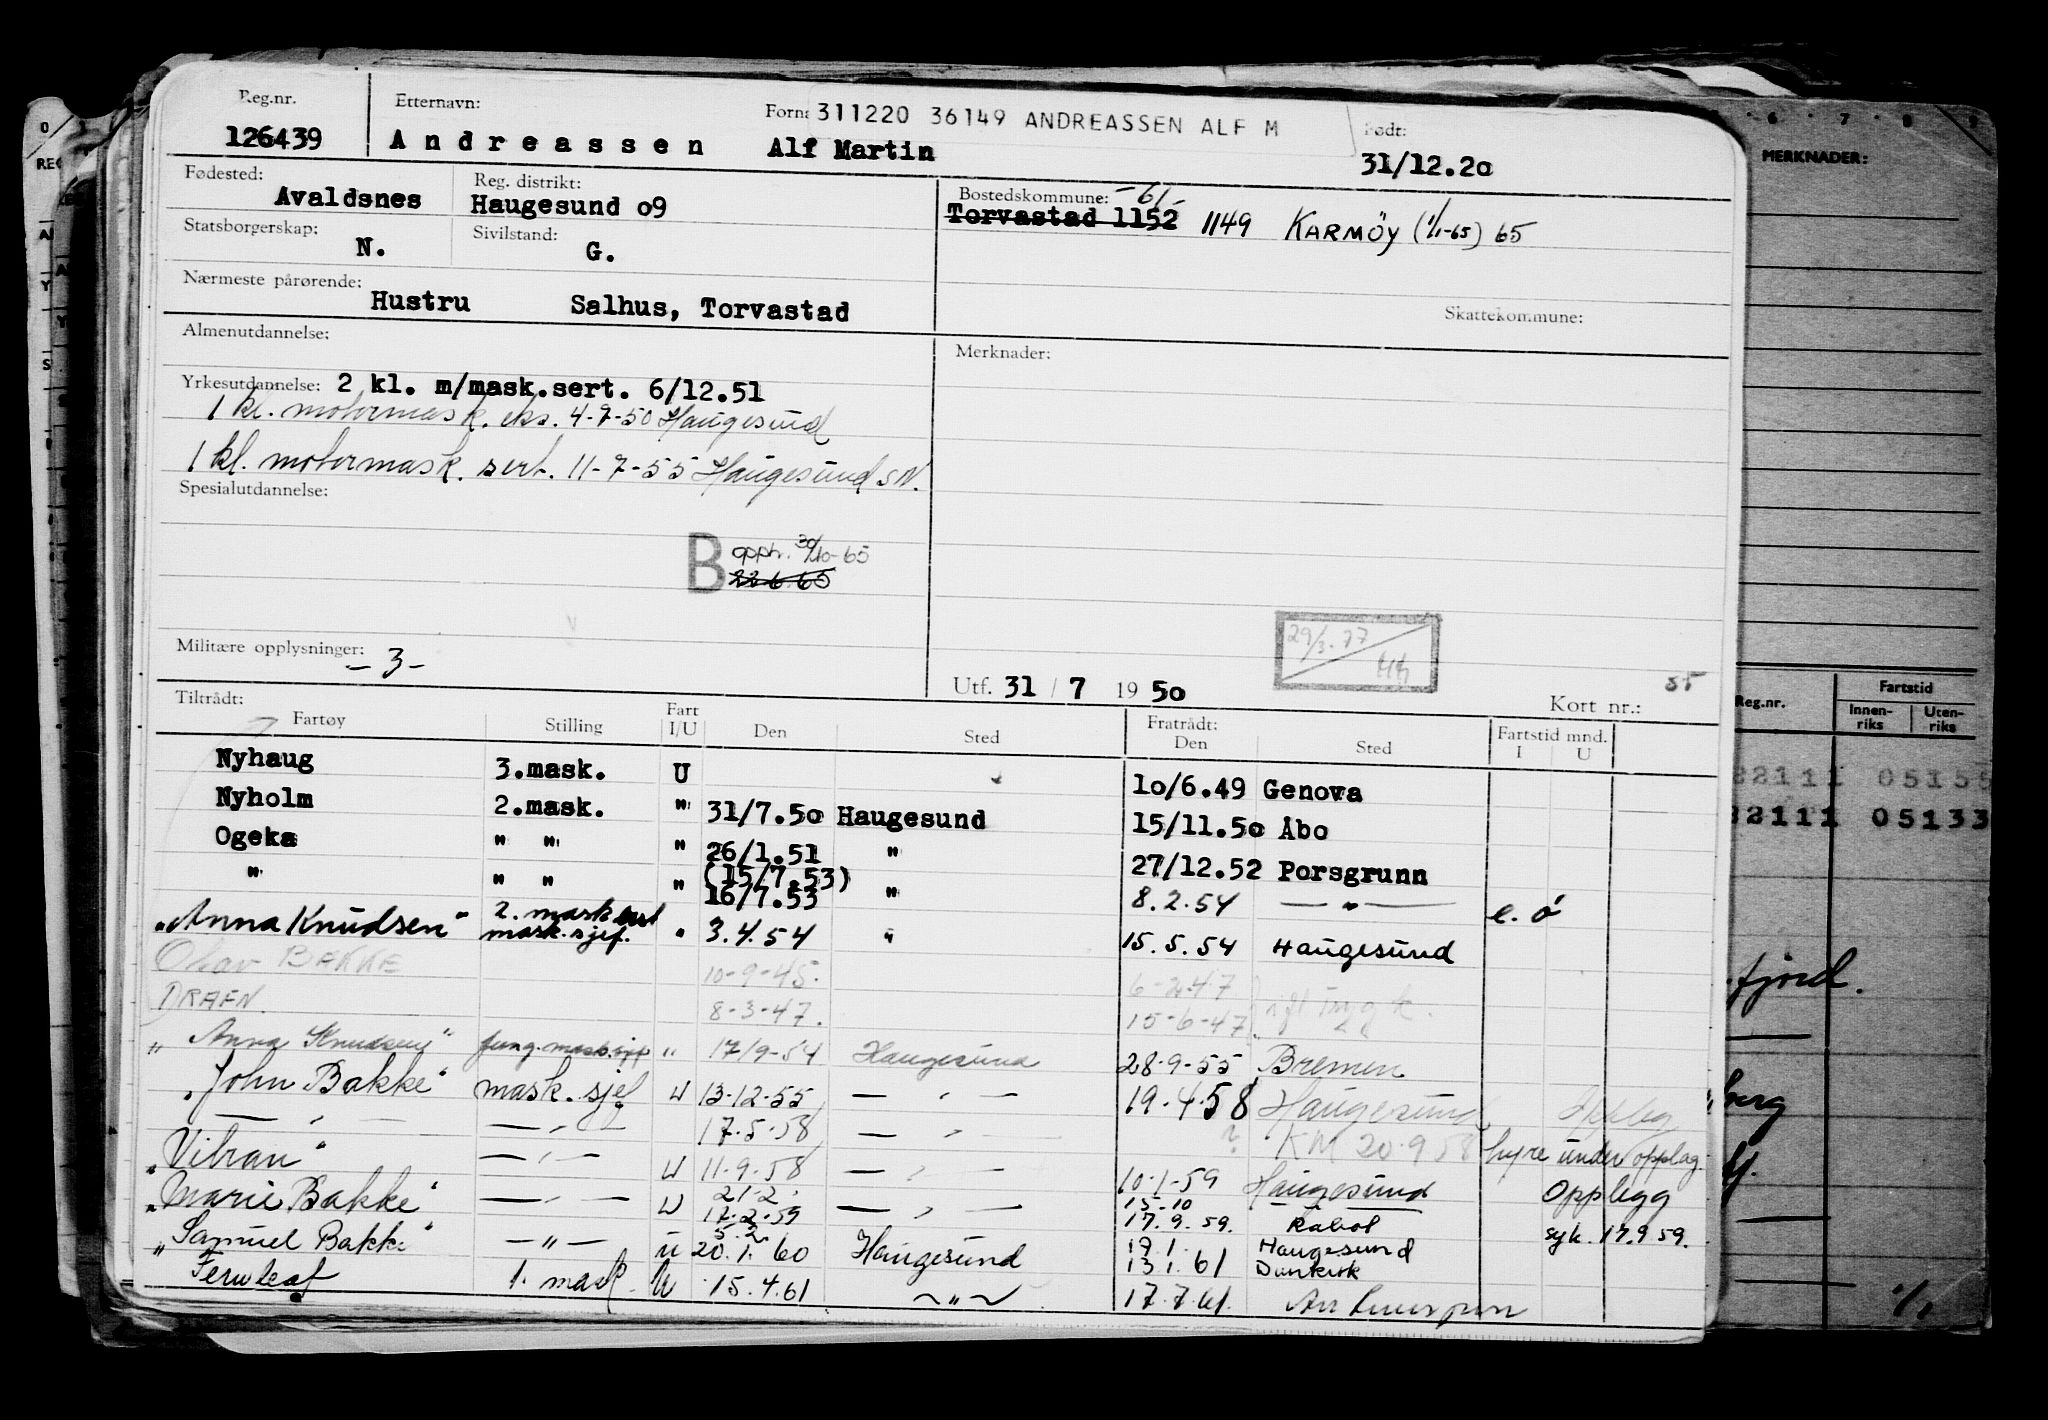 Reg.nr. Etternavn: Forn: 311220 36149 ANDREASSEN ALF M Født:
126439 Andreassen Alf Martin 31/12.20
Fødested: Avaldsnes Reg. distrikt: Haugesund 09 Bostedskommune: -61-
Torvastad 1152 1149 KARMÖY (1/1-65) 65
Statsborgerskap: N. Sivilstand: G.
Nærmeste pårørende: Hustru Salhus, Torvastad
Skattekommune:
Almenutdannelse: Merknader:
Yrkesutdannelse: 2 kl. m/mask.sert. 6/12.51
1 kl. motormask. eks. 4-7-50 Haugesund
1 kl. motormask. sert. 11-7-55 Haugesund SN.
Spesialutdannelse:
B opph. 30/10-65
22.6.65
29/3.77
Militære opplysninger: -3-
Utf. 31 / 7 1950 Kort nr.:
Tiltrådt: Fartøy Stilling Fart I/U Den Sted Fratrådt: Den Sted Fartstid mnd. I U
Nyhaug 3.mask. U 10/6.49 Genova
Nyholm 2.mask. " 31/7.50 Haugesund 15/11.50 Åbo
Ogeka " " " 26/1.51 " 27/12.52 Porsgrunn
(15/7.53)
" " " " 16/7.53 " 8.2.54 — " — e. ó
"Anna Knudsen" 2. mask mask.sjef. " 3.4.54 " 15.5.54 Haugesund
Olav BAKKE 10-9-45. 6-2-47
DRAFN. 8-3-47. 15-6-47
"Anna Knudsen" fung. mask.sjef " 17/9-54 Haugesund 28-9-55 Bremen
"John Bakke" mask. sjef U 13-12-55 — " — 19.4.58 Haugesund Opplag
— " — — " — 17.5.58 — " — ? KM 20.9.58 hyre under opplag.
"Vibran" — " — U 11.9.58 — " — 10.1.59 Haugesund Opplegg
"Marie Bakke" — " — U 21.2. 17.2.59 — " — 15-10 17.9.59. Rabat syk. 17.9.59.
"Samuel Bakke" — " — U 5.2. 20.1.60 Haugesund 19.1. 13.1.61 Haugesund Dunkirk
Fernleaf 1. mask. U 15.4.61 — " — 17.7.61.
MERKNADER:
Reg.nr. Fartstid
Innen-riks Uten-riks
22111 05155
22111 05133
fjord.
berg